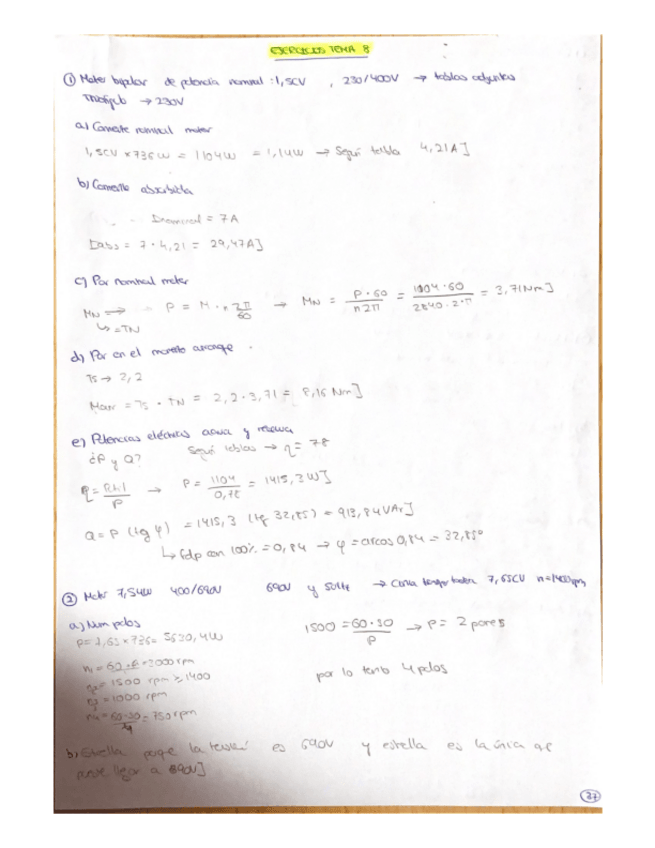 EJERCICIOS TEMA 8
① Motor bipolar de potencia nominal: 1,5CV , 230/400V → tablas adjuntas
→ 230V
a) Corriente nominal motor
1,5CV x 736W = 1104W = 1,1kW → Según tabla 4,21A]
b) Corriente absorbida
= 7A
Iabs = 7 · 4,21 = 29,47A]
c) Par nominal motor
MN → P = M · n 2π/60 → MN = P·60/n2π = 1104·60/2840·2·π = 3,71Nm]
↳ =TN
d) Par en el momento arranque
Ts → 2,2
= Ts · TN = 2,2·3,71 = 8,16 Nm]
e) Potencias eléctricas activa y reactiva
¿P y Q? Según tablas → η = 78
η = /P → P = 1104/0,78 = 1415,3W]
Q = P (tg φ) = 1415,3 (tg 32,85) = 913,84VAr]
↳ fdp con 100% = 0,84 → φ = arcos 0,84 = 32,85°
② Motor 400/690V 690V y 50Hz → 7,65CV n=1400rpm
a) Num polos
= 5630,4W
1500 = 60·50/P → P = 2 pares
= 3000rpm
= 1500 rpm ≥ 1400
por lo tanto 4 polos
= 1000 rpm
= 750rpm
b) Estrella porque la tensión es 690V y estrella es la única que
puede llegar a 690V]
37